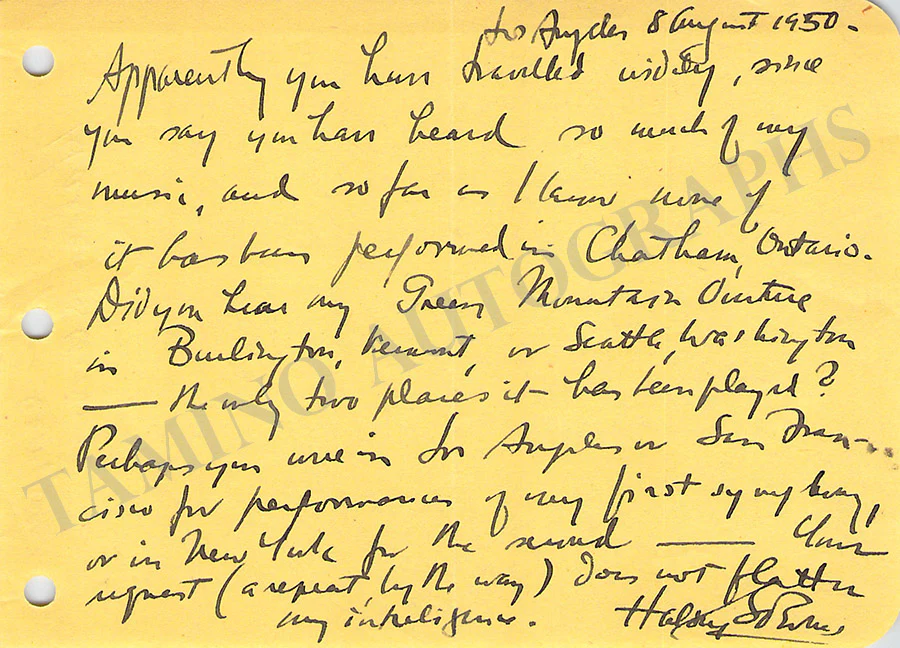 Los Angeles 8 August 1950.
Apparently you have travelled widely, since
you say you have heard so much of my
music, and so far as I know none of
it has been performed in Chatham, Ontario.
Did you hear my Green Mountain Overture
in Burlington, Vermont, or Seattle, Washington
— the only two places it has been played?
Perhaps you were in Los Angeles or San Fran-
cisco for performances of my first symphony,
or in New York for the second — Your
request (a repeat, by the way) does not flatter
my intelligence. Halsey Stevens
TAMINO AUTOGRAPHS